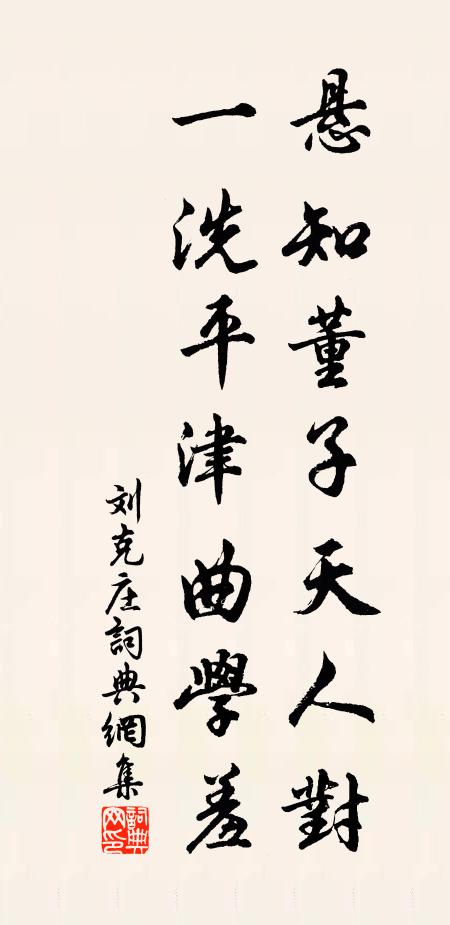 悬知董子天人對
一洗平津曲學羞
刘克庄詞典網集
詞典网印